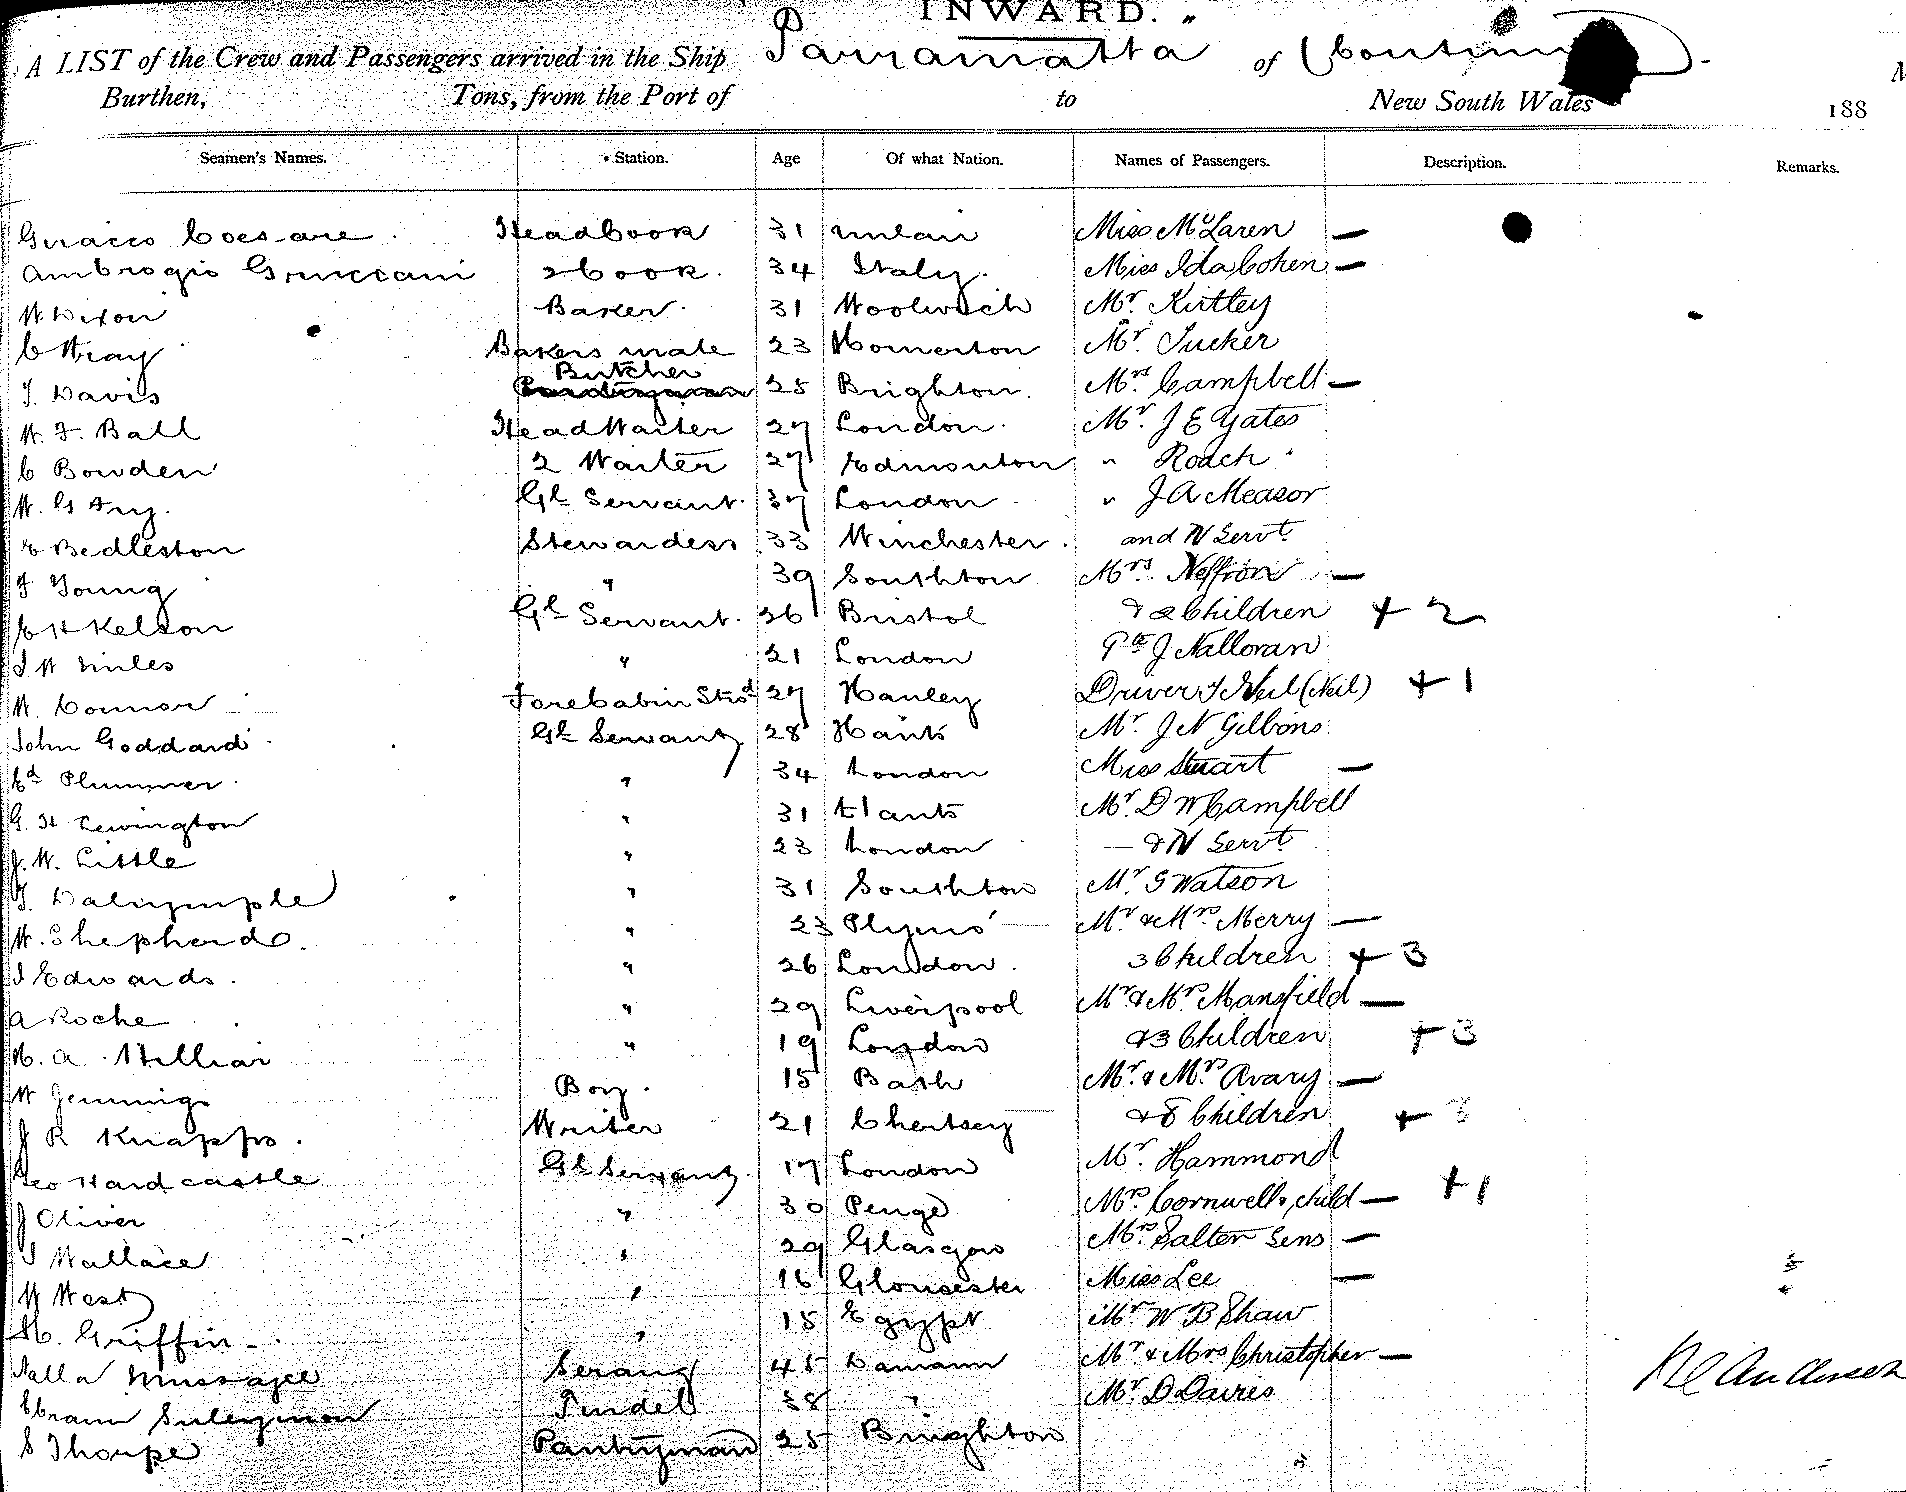 INWARD.
A LIST of the Crew and Passengers arrived in the Ship Parramatta of Continu
Burthen, Tons, from the Port of to New South Wales 188
Seamen's Names. Station. Age Of what Nation. Names of Passengers. Description. Remarks.
Head Cook 31 Milan Miss McLaren —
Ambrogio 2 Cook. 34 Italy. Miss Ida Cohen —
W Dixon Baker. 31 Woolwich Mr Kirtley
C Wray Bakers mate 23 Homerton Mr. Tucker
T. Davis Butcher 25 Brighton. Mrs Campbell —
W. F. Ball Head Waiter 27 London. Mr. J E Yates
C Bowden 2 Waiter 27 Edmonton " Roach
W. G Fry. Gl Servant. 37 London " J A Measor
E Bedleston Stewardess 33 Winchester. and N Servt.
F Young " 39 Southton Mrs. Neffron —
E H Kelson Gl Servant. 26 Bristol & 2 Children + 2
J W Miles " 21 London J Nalloran
W. Connor Forecabin Stwd 27 Hanley Driver T Neil (Neil) + 1
John Goddard Gl Servant 28 Hants Mr. J N Gibbons
Ed Plummer. " 34 London Miss Stuart —
G. H Lewington " 31 Hants Mr. D W Campbell
J. W. Little " 23 London — & N Servt.
T. Dalrymple " 31 Southton Mr. G Watson
W. Shepherd. " 23 Plymo' Mr & Mrs Merry —
J Edwards. " 26 London. 3 Children + 3
A Roche " 29 Liverpool Mr & Mrs Mansfield —
H. A. Hilliar " 19 London & 3 Children + 3
W Jennings Boy. 15 Bath Mr. & Mrs Avary —
J R Knapps. Writer 21 Chertsey & 8 Children + 8
Geo Hardcastle Gl Servant. 17 London Mr. Hammond
J Oliver " 30 Penge Mrs. Cornwell & child — + 1
J Wallace " 29 Glasgow Mrs Salter Sens —
W West " 16 Gloucester Miss Lee —
H. Griffin — " 15 Egypt Mr W B Shaw
Serang 45 Damaun Mr & Mrs Christopher —
Suleyman Tindel 38 " Mr. D Davies
S Thorpe Pantryman 25 Brighton